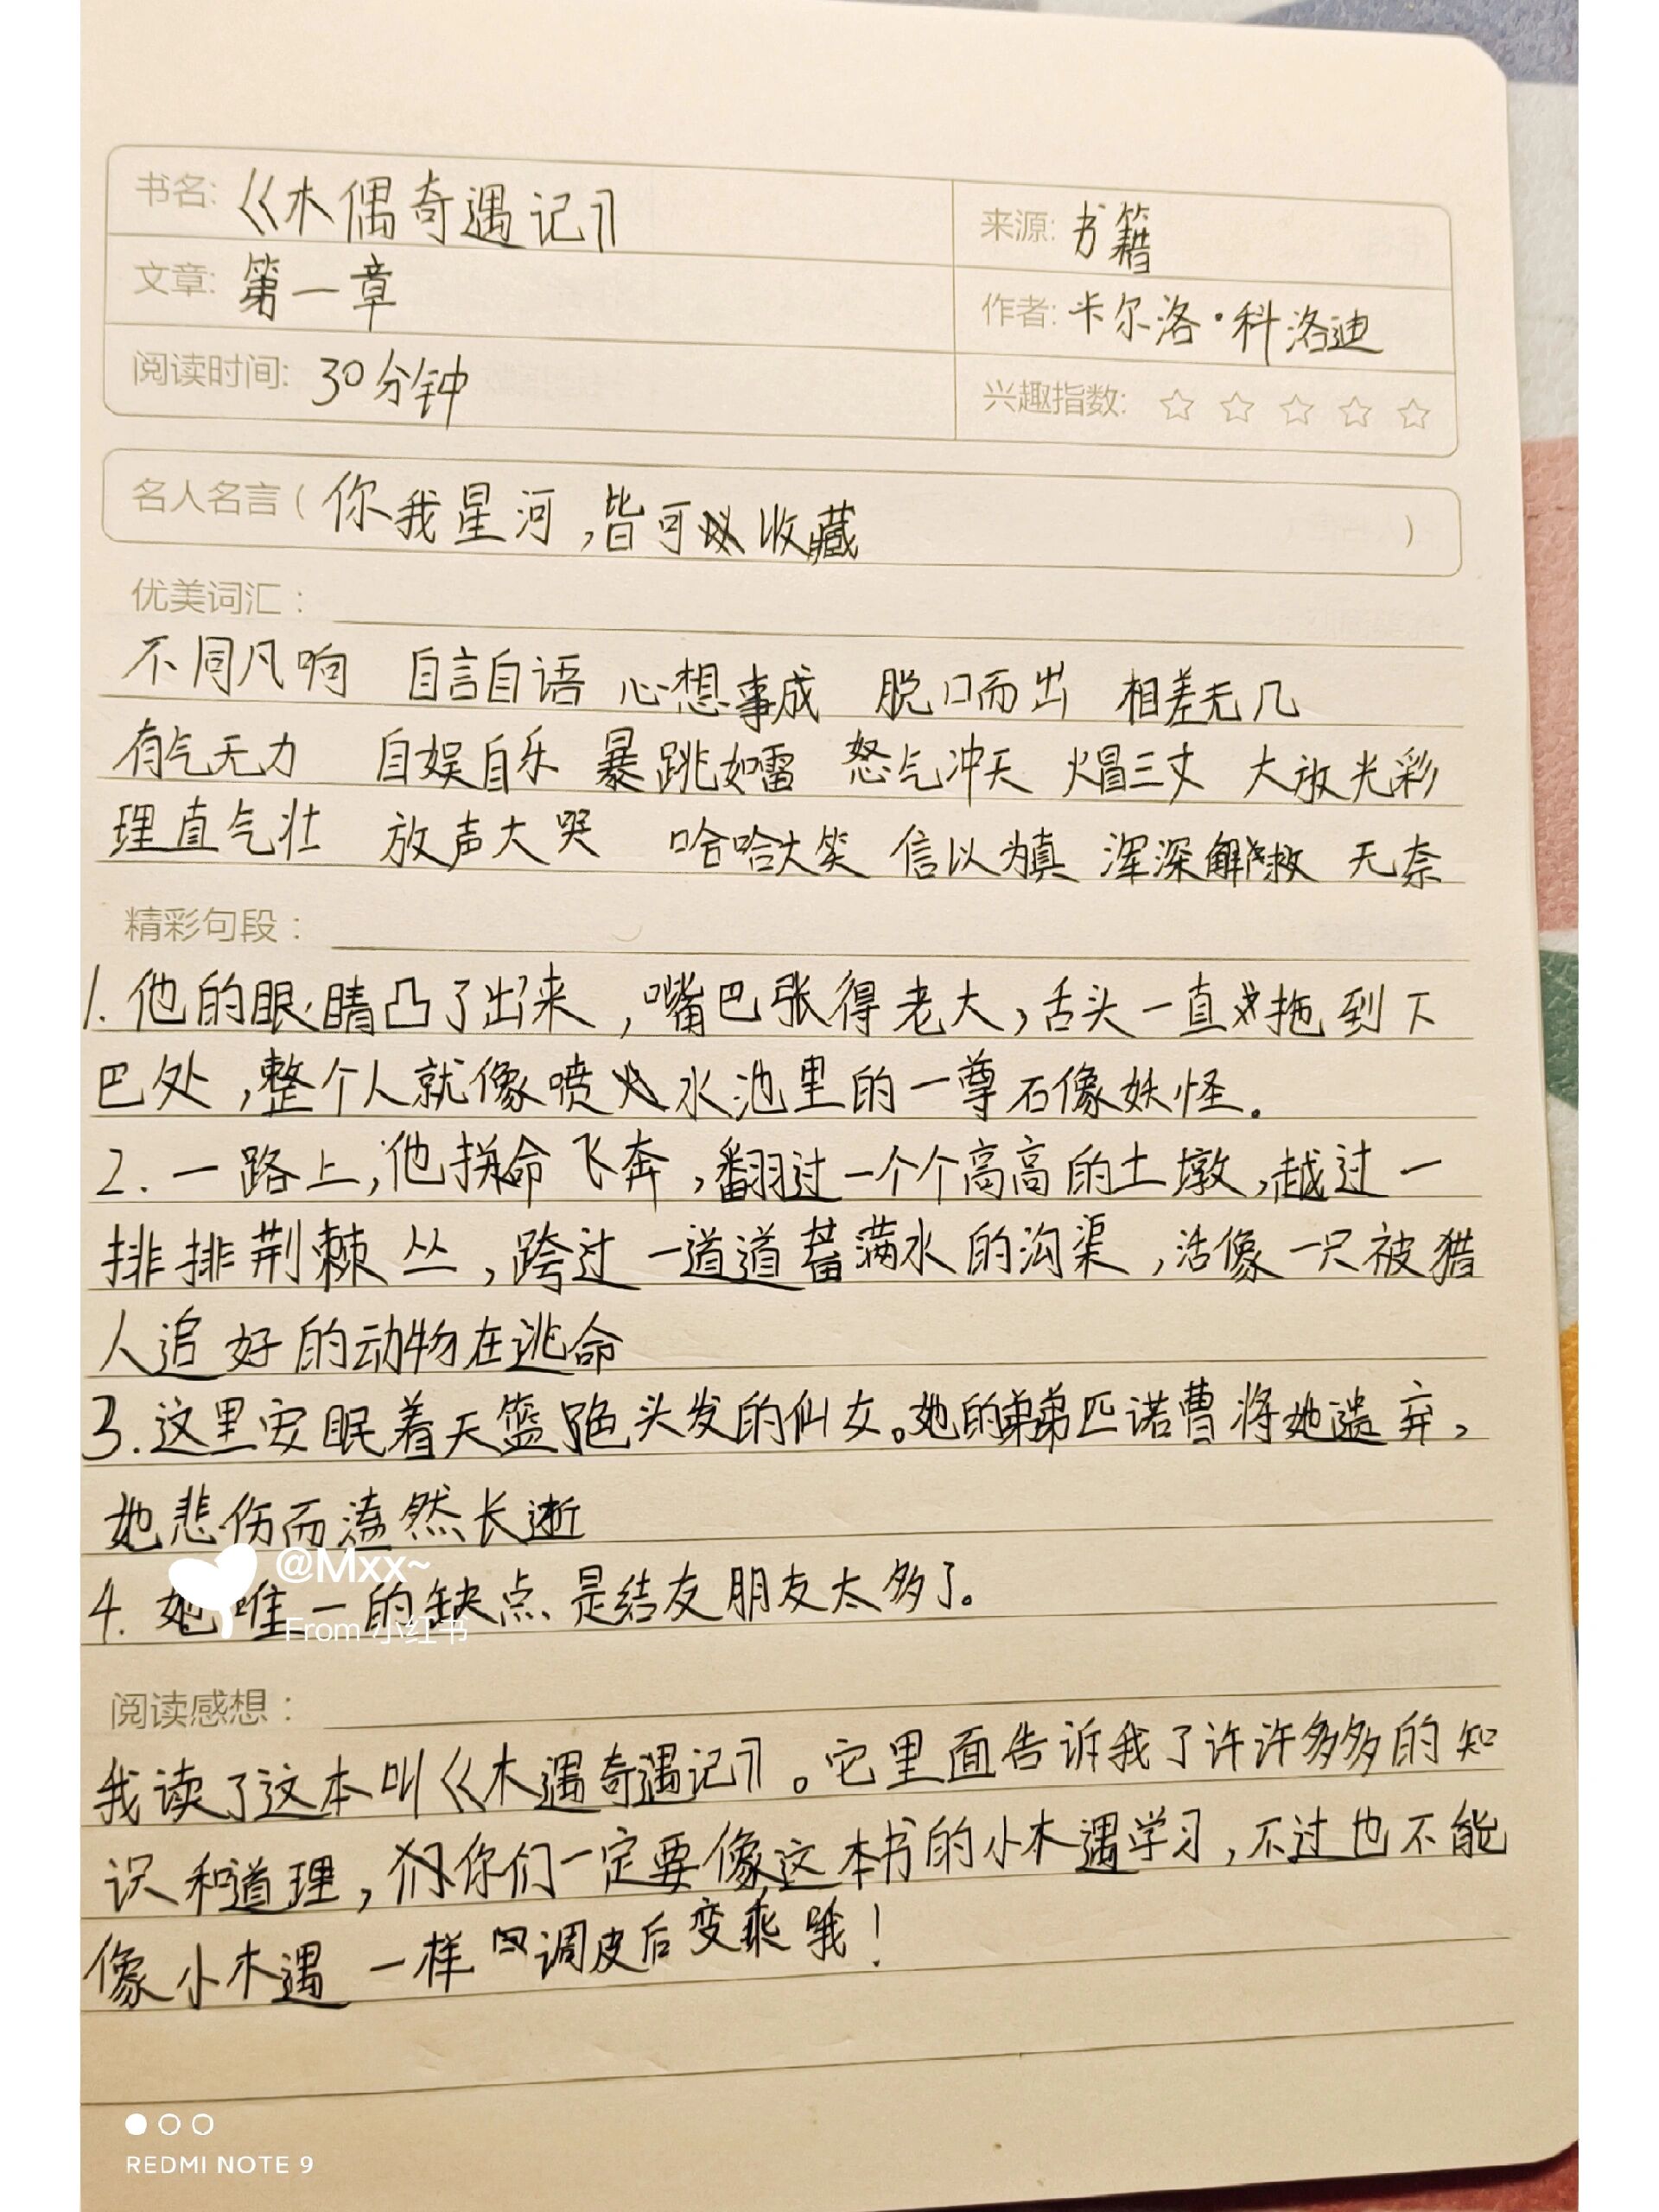 书名: 《木偶奇遇记》
来源: 书籍
文章: 第一章
作者: 卡尔洛·科洛迪
阅读时间: 30分钟
兴趣指数: ☆ ☆ ☆ ☆ ☆
名人名言( 你我星河,皆可收藏 )
优美词汇:
不同凡响 自言自语 心想事成 脱口而出 相差无几
有气无力 自娱自乐 暴跳如雷 怒气冲天 火冒三丈 大放光彩
理直气壮 放声大哭 哈哈大笑 信以为真 浑深解救 无奈
精彩句段:
1.他的眼睛凸了出来,嘴巴张得老大,舌头一直拖到下
巴处,整个人就像喷水池里的一尊石像妖怪。
2.一路上,他拼命飞奔,翻过一个个高高的土墩,越过一
排排荆棘丛,跨过一道道蓄满水的沟渠,活像一只被猎
人追好的动物在逃命
3.这里安眠着天篮色头发的仙女。她的弟弟匹诺曹将她遗弃,
她悲伤而溘然长逝
4.她唯一的缺点是结友朋友太多了。
@Mxx~
From 小红书
阅读感想:
我读了这本叫《木遇奇遇记》。它里面告诉我了许许多多的知
识和道理,你们一定要像这本书的小木遇学习,不过也不能
像小木遇一样调皮后变乖哦!
REDMI NOTE 9